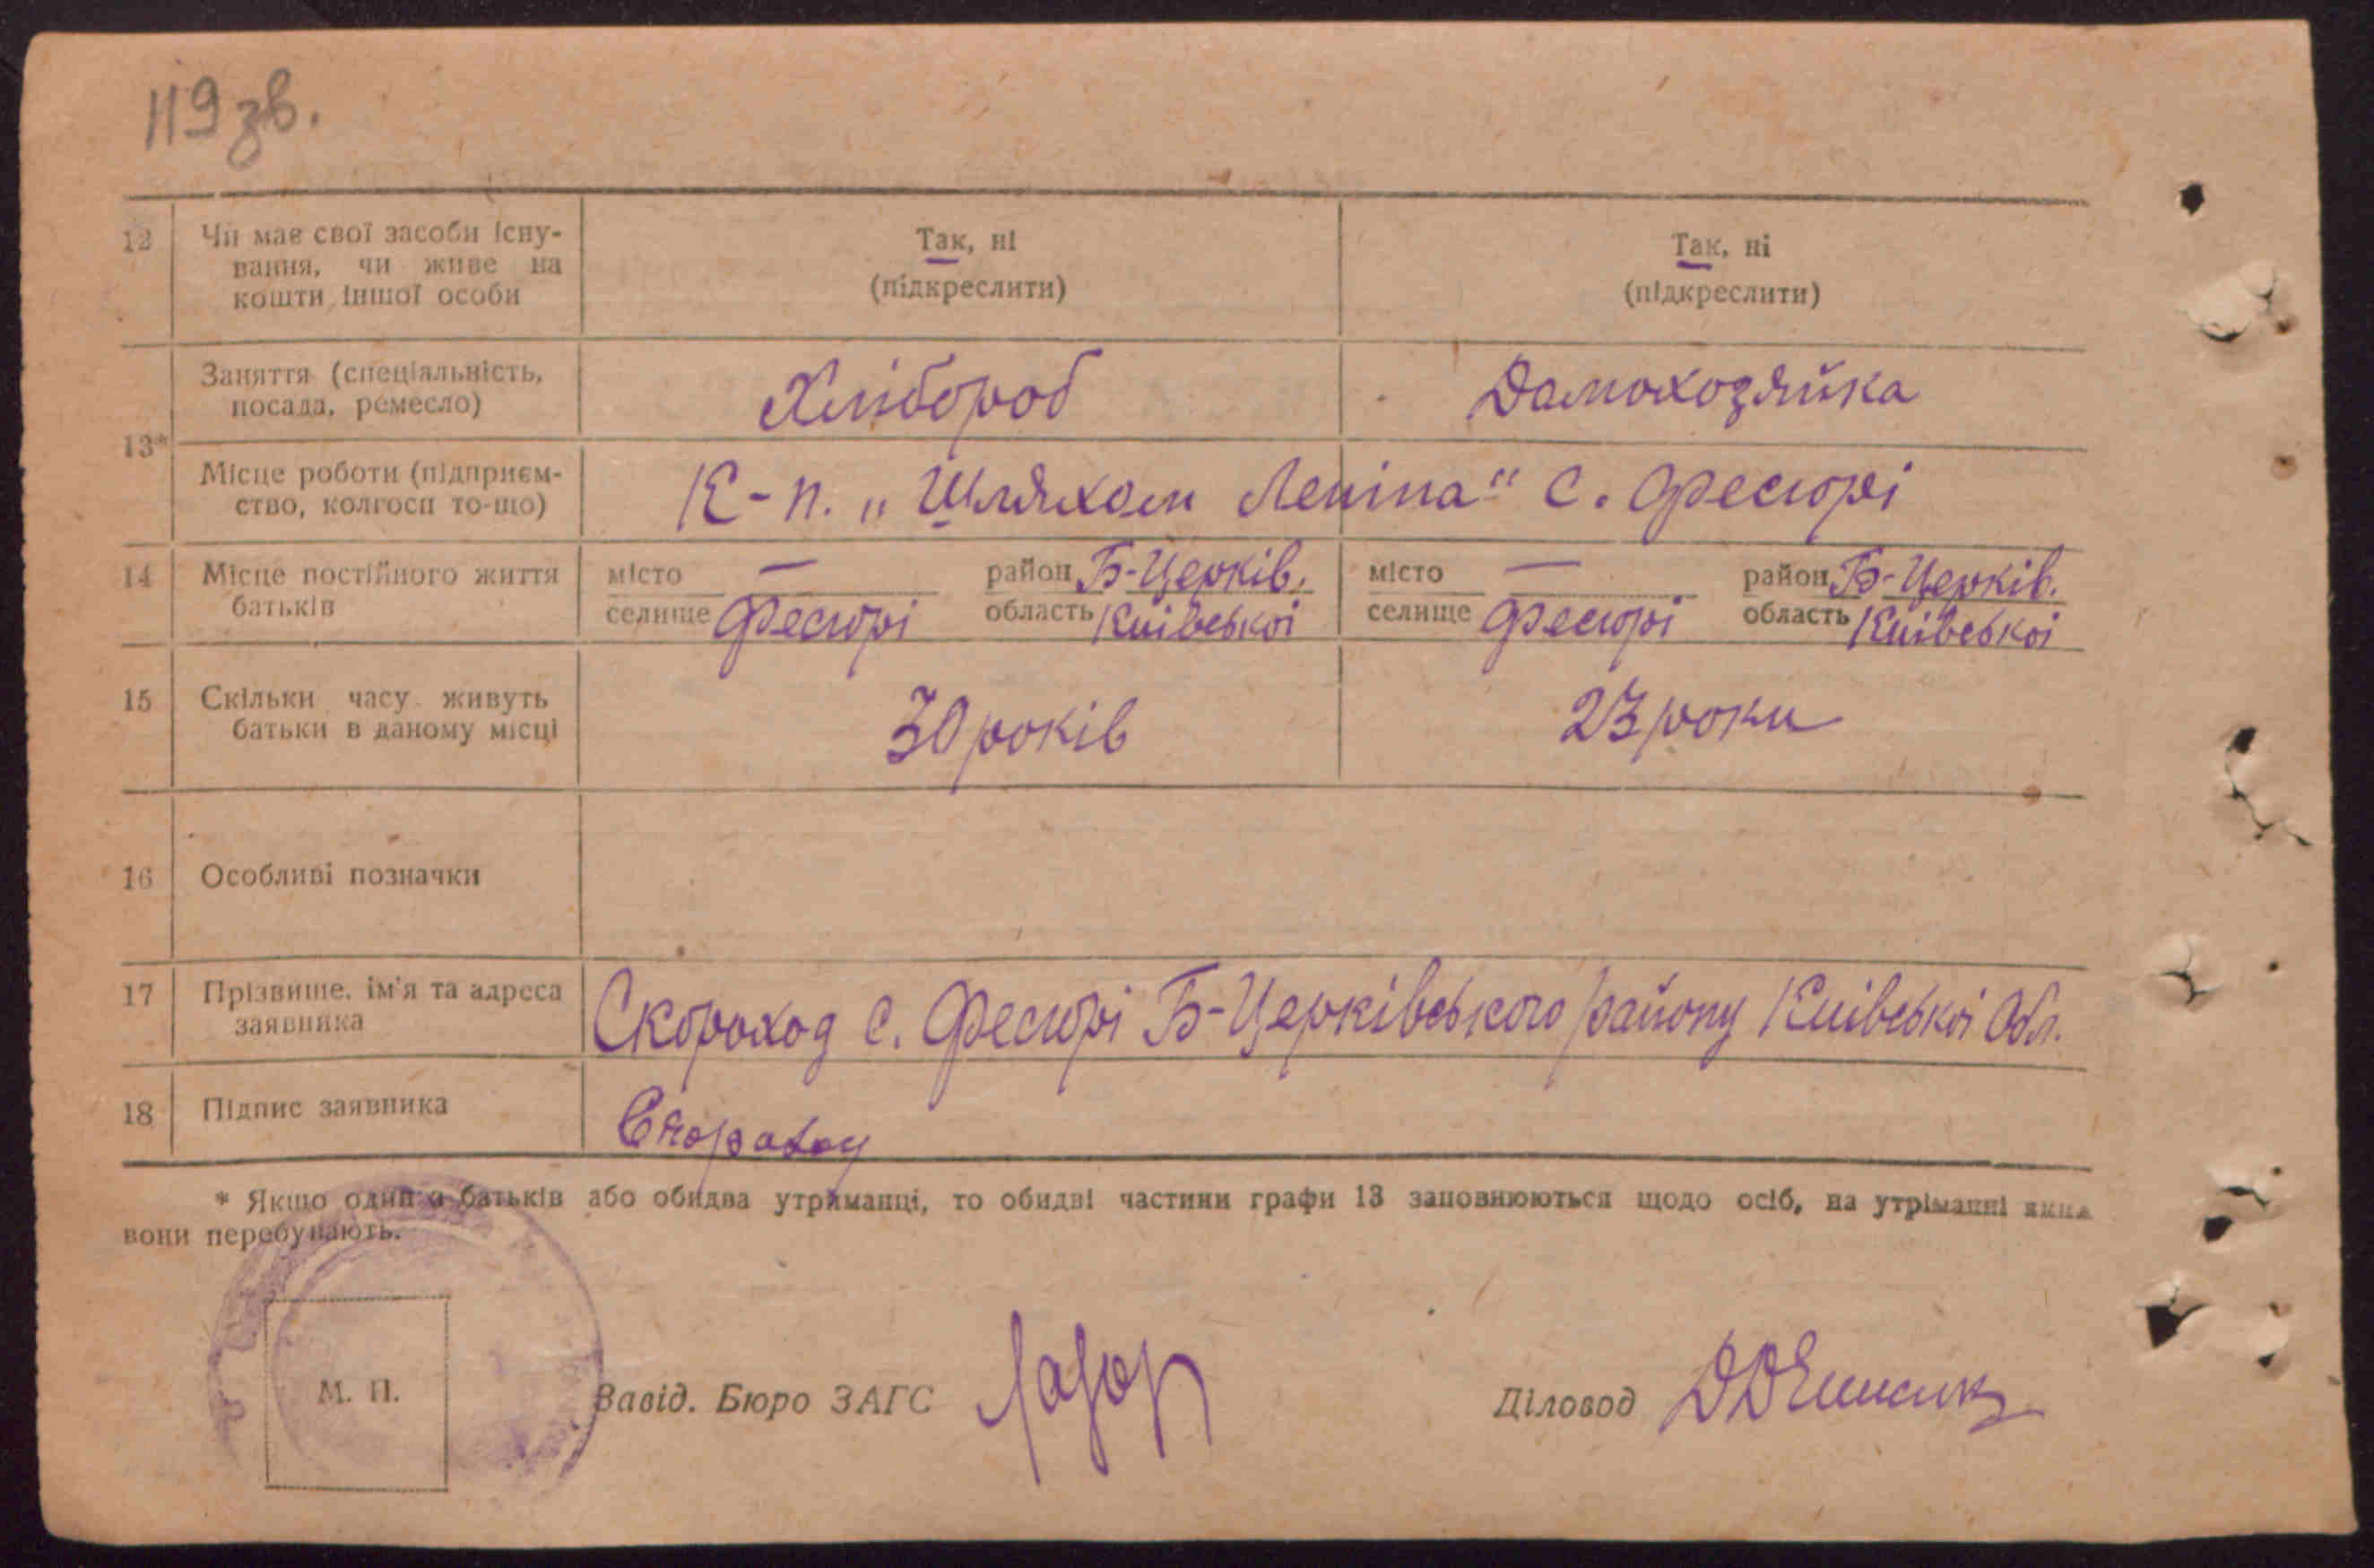 119 зв.
12 Чи має свої засоби існу-
вання, чи живе на
кошти іншої особи
Так, ні
(підкреслити)
Так, ні
(підкреслити)
13*
Заняття (спеціальність,
посада, ремесло)
Хлібороб
Домохозяйка
Місце роботи (підприєм-
ство, колгосп то-що)
К-п. „Шляхом Леніна" с. Фесюрі
14 Місце постійного життя
батьків
місто — район Б-Церків.
селище Фесюрі область Киівськоі
місто — район Б-Церків.
селище Фесюрі область Киівськоі
15 Скільки часу живуть
батьки в даному місці
30 років
23 роки
16 Особливі позначки
17 Прізвище, ім'я та адреса
заявника
Скороход с. Фесюрі Б-Церківського району Киівськоі Обл.
18 Підпис заявника
Скороход
* Якщо один з батьків або обидва утриманці, то обидві частини графи 13 заповнюються щодо осіб, на утріманні яких
вони перебувають.
М. П.
Завід. Бюро ЗАГС
Діловод